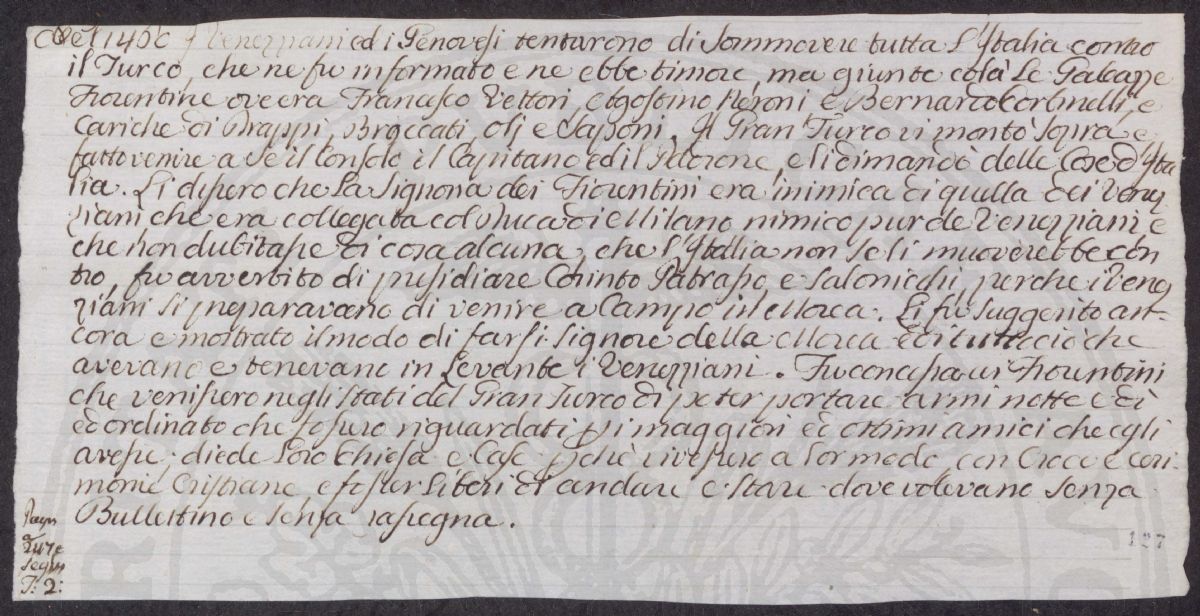 Del 1460 i Venezziani ed i Genovesi tentarono di Sommovere tutta L'Italia contro
il Turco, che ne fu informato e ne ebbe timore, ma giunte colà Le Galeazze
Fiorentine ove era Francesco Vettori, Agostino e Bernardo Corbinelli, e
cariche di Drappi, Broccati, olj e Saponi. Il Gran Turco vi montò sopra e
fatto venire a se il Consolo il Capitano ed il Padrone, e li dimandò delle Cose d'Ita
lia. Li dissero che La Signoria dei Fiorentini era inimica di quella dei Venez
ziani che era collegata col Duca di Milano nimico pur de Venezziani e
che non dubitasse di cosa alcuna, che L'Itallia non se li muoverebbe con
tro, fu avvertito di presidiare Corinto Patrasso e Salonicchi, perche i Venez
ziani si preparavano di venire a Campo in Morea. Li fu suggerito an-
cora e mostrato il modo di farsi Signore della Morea e di tutto ciò che
avevano e tenevano in Levante i Venezziani. Fu concesso ai Fiorentini
che venissero negli stati del Gran Turco di poter portare armi notte e dì
ed ordinato che fossero riguardati pi maggiori ed ottimi amici che egli
avesse, diede Loro Chiesa e Case pchè vivessero a lor modo, con Croce e ceri
monie Cristiane, e fosser Liberi di andare e stare dove volevano senza
Bullettino e senza rassegna.
Pagn
segn
T: 2:
127